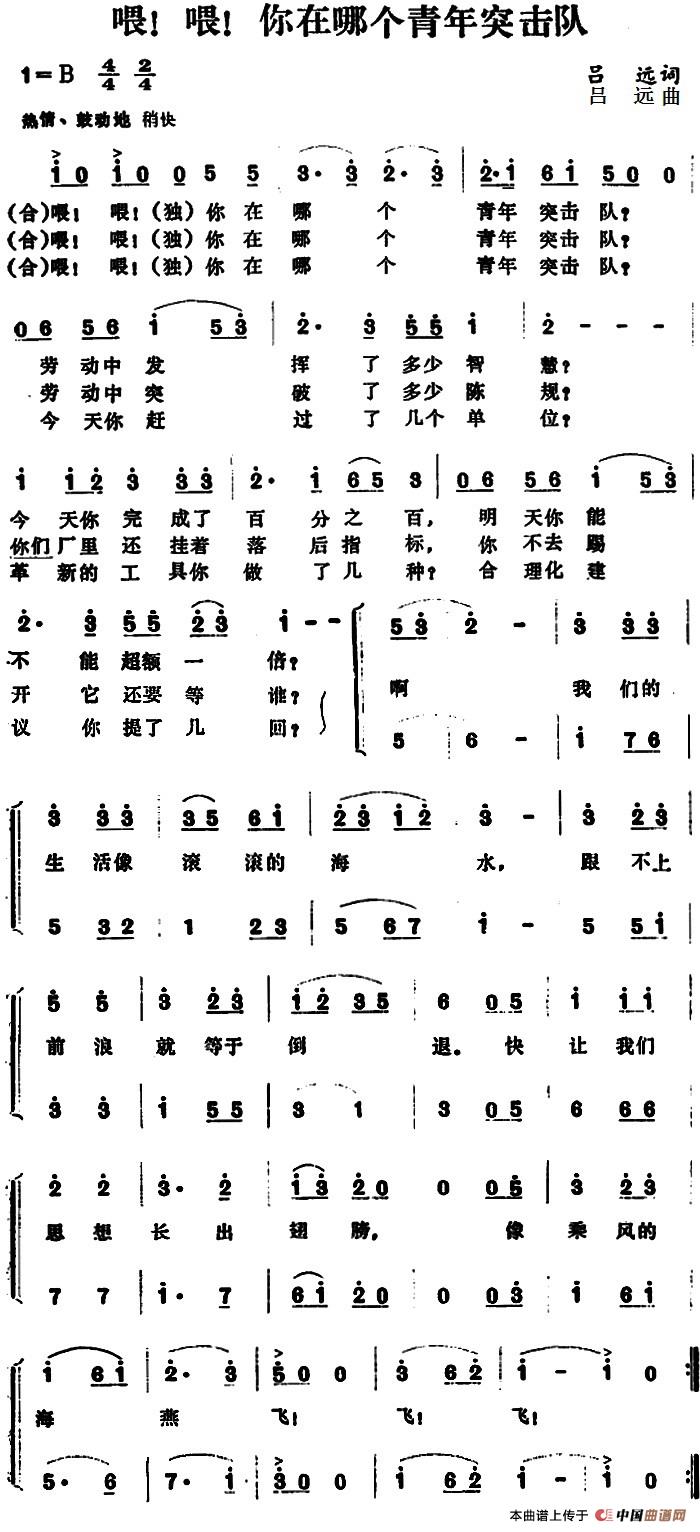 喂！喂！你在哪个青年突击队
1=B 4/4 2/4
吕 远词
吕 远曲
热情、鼓动地 稍快
(合)喂！ 喂！(独)你 在 哪 个 青年 突击 队？
(合)喂！ 喂！(独)你 在 哪 个 青年 突击 队？
(合)喂！ 喂！(独)你 在 哪 个 青年 突击 队？
劳 动中 发 挥 了 多少 智 慧？
劳 动中 突 破 了 多少 陈 规？
今 天你 赶 过 了 几个 单 位？
今 天你 完 成了 百 分 之 百， 明 天你 能
你们 厂里 还 挂着 落 后 指 标， 你 不去 踢
革 新的 工 具你 做 了 几 种？ 合 理化 建
不 能 超额 一 倍？
开 它 还要 等 谁？
议 你 提了 几 回？
啊 我 们的
生 活像 滚 滚的 海 水， 跟 不上
前 浪 就 等于 倒 退。 快 让 我们
思 想 长 出 翅 膀， 像 乘 风的
海 燕 飞！ 飞！ 飞！
本曲谱上传于 中国曲谱网